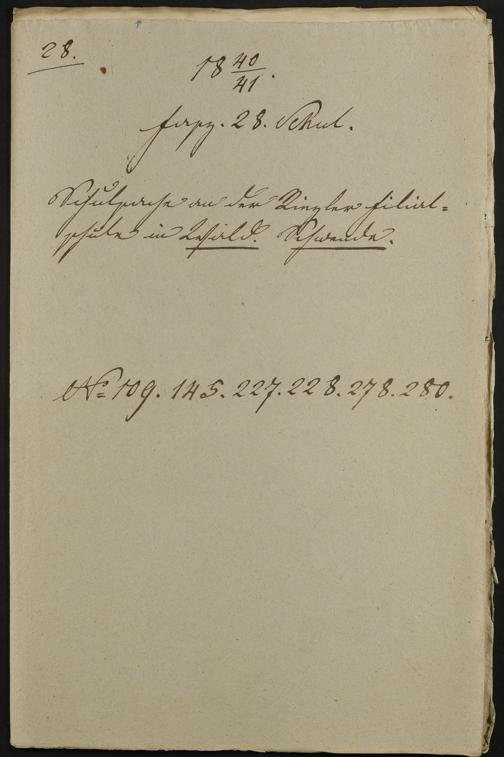 28.
18 40/41.
Fasz. 28. Schul.
Schulsache an der Kinzler Filial=
schule in Wald. Schwende.
No 109. 145. 227. 228. 278. 280.